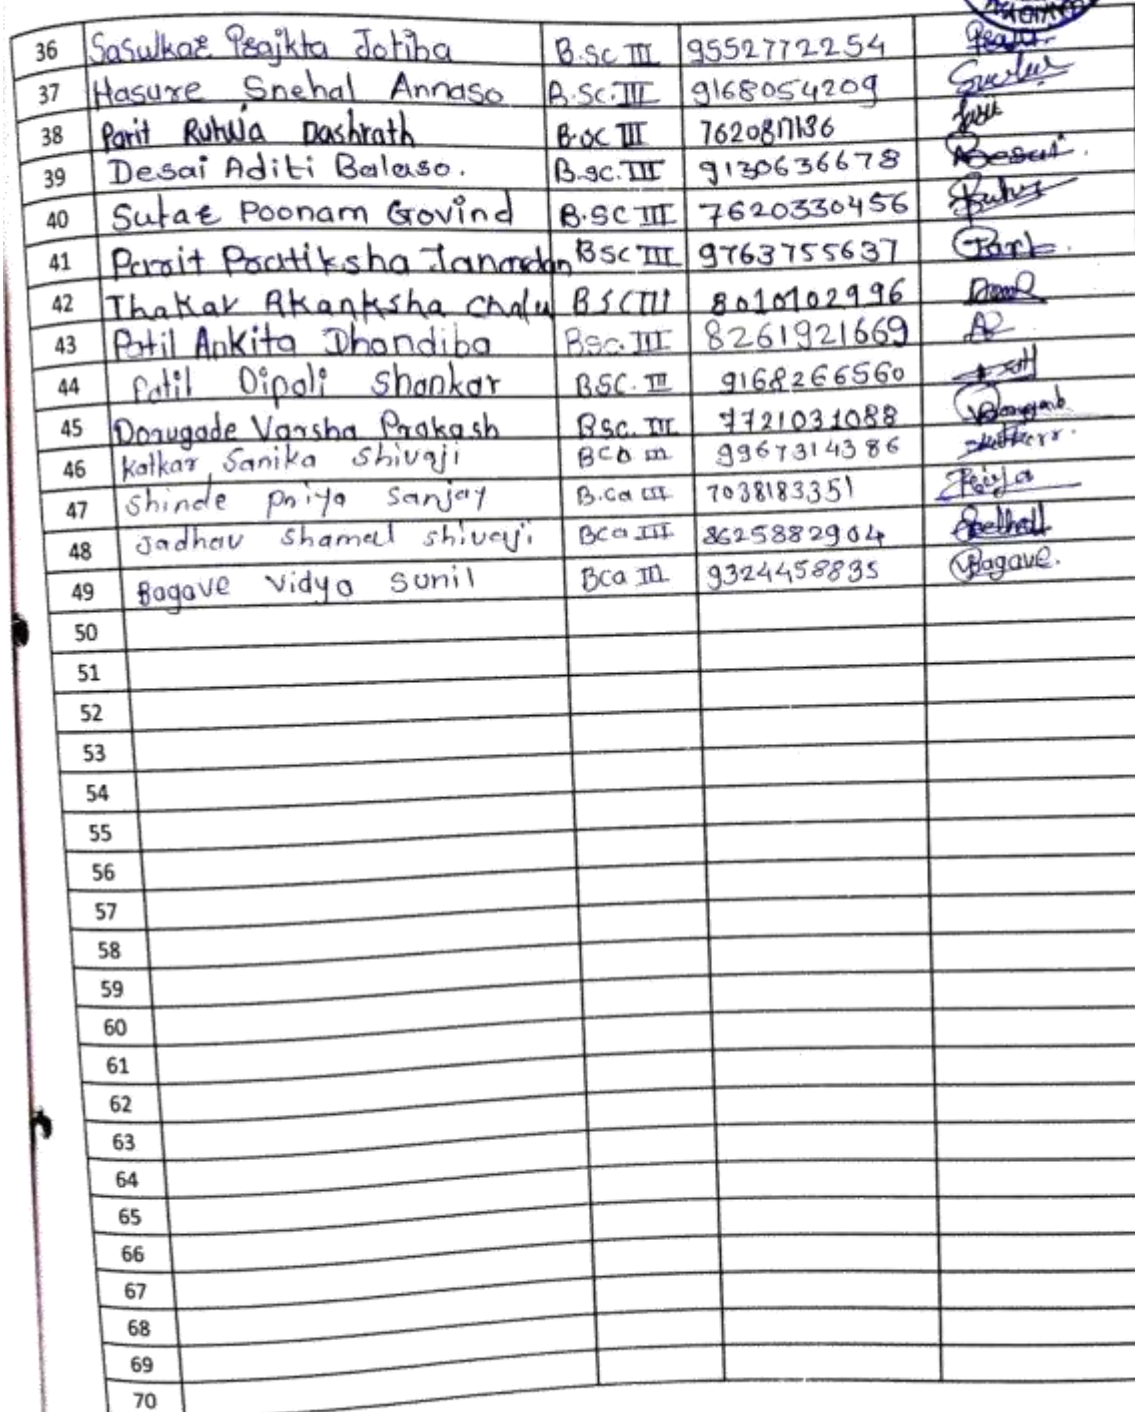 36 Sasulkar Prajkta Jotiba B.Sc III 9552772254
37 Hasure Snehal Annaso B.Sc.III 9168054209
38 Parit Rutuja Dashrath B.Sc III
39 Desai Aditi Balaso. B.Sc.III 9130636678 Desai
40 Sutar Poonam Govind B.SC III 7620330456
41 Parit Pratiksha Janardan BSC III 9763755637
42 Thakar Akanksha Chalu BSCIII 8010102996
43 Patil Ankita Dhondiba Bsc.III 8261921669
44 Patil Dipali Shankar BSC. III 9168266560
45 Dorugade Varsha Prakash BSC. III 7721031088
46 Katkar Sanika Shivaji BCA III 9967314386
47 Shinde Priya Sanjay B.Ca III 7038183351 Priya
48 Jadhav Shamal Shivaji BCa III 8625882904
49 Bagave Vidya Sunil BCa III 9324458835 Bagave.
50
51
52
53
54
55
56
57
58
59
60
61
62
63
64
65
66
67
68
69
70